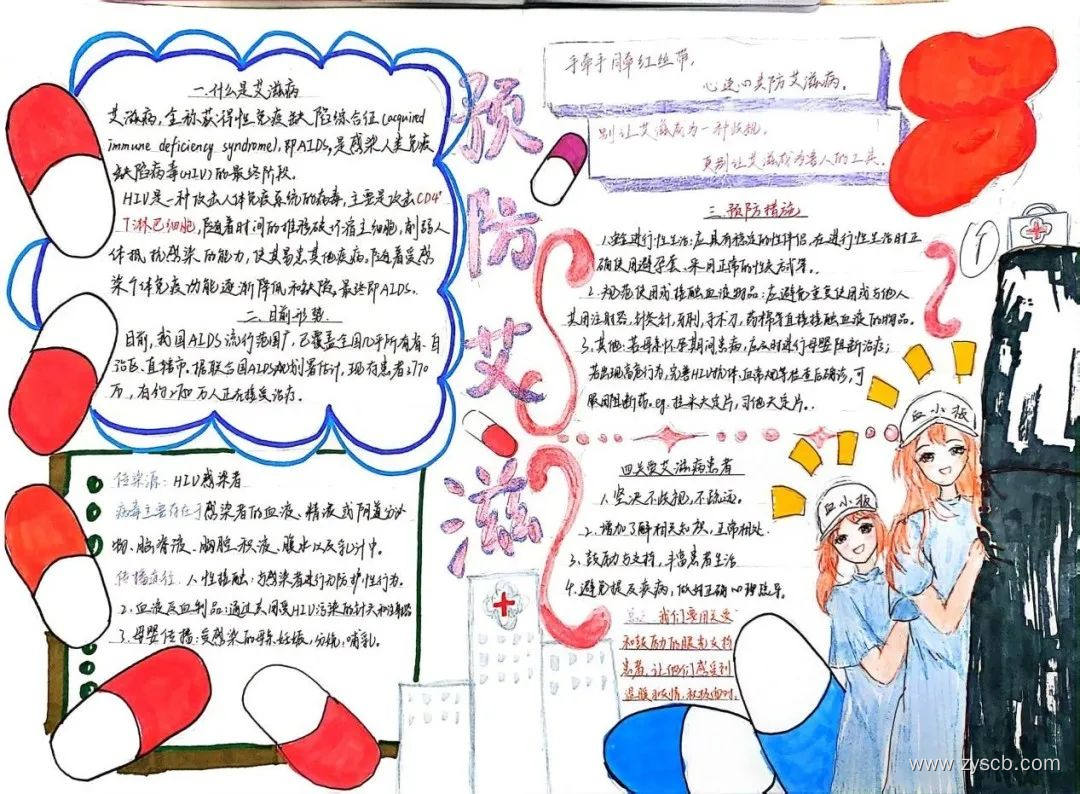 预防艾滋
一.什么是艾滋病
艾滋病,全称获得性免疫缺陷综合征(acquired
immune deficiency syndrome),即AIDS,是感染人类免疫
缺陷病毒(HIV)的最终阶段。
HIV是一种攻击人体免疫系统的病毒,主要是攻击CD4⁺
T淋巴细胞,随着时间的推移破坏宿主细胞,削弱人
体抵抗感染的能力,使其易患其他疾病。随着受感
染个体免疫功能逐渐降低和缺陷,最终即AIDS。
二.目前形势
目前,我国AIDS流行范围广,已覆盖全国几乎所有省、自
治区、直辖市。据联合国AIDS规划署估计,现有患者
万,有约 万人正在接受治疗。
传染源:HIV感染者
病毒主要存在于感染者的血液、精液或阴道分泌
物、脑脊液、胸腔积液、腹水以及乳汁中。
传播途径:1.性接触:与感染者进行无防护性行为。
2.血液及血制品:通过共用受HIV污染的针头和注射器
3.母婴传播:受感染的母亲妊娠,分娩,哺乳。
手牵手同牵红丝带,
心连心共防艾滋病。
别让艾滋成为一种歧视,
更别让艾滋成为害人的工具。
三.预防措施
1.安全进行性生活:应具有稳定的性伴侣,在进行性生活时正
确使用避孕套、采用正常的性交方式等。
2.规范使用或接触血液物品:应避免重复使用或与他人
共用注射器,针灸针,牙刷,手术刀,药棉等直接接触血液的物品。
3.其他:若母亲怀孕期间患病,应及时进行母婴阻断治疗;
若出现高危行为,完善HIV抗体、血常规等检查后确诊,可
服用阻断药.eg.拉米夫定片,司他夫定片。
四.关爱艾滋病患者
1.坚决不歧视,不疏远。
2.增加了解相关知识,正常相处.
3.鼓励与支持,丰富患者生活
4.避免提及疾病,做好正确心理疏导。
我们要用关爱
和鼓励的眼光支持
患者,让他们感受到
温暖和友情,积极面对。
血小板
血小板
www.zyscb.com